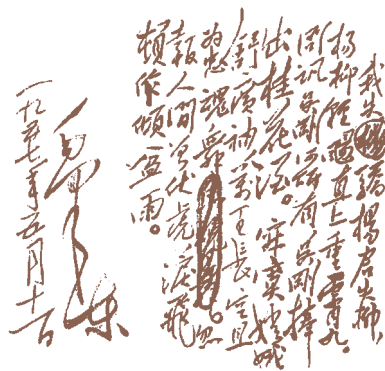 我失驕楊君失柳,
楊柳輕颺直上重霄九。
問訊吳剛何所有吳剛捧
出桂花酒。寂寞嫦娥
舒廣袖萬里長空且
為忠魂舞。忽
報人間曾伏虎,淚飛
頓作傾盆雨。
毛澤東
一九五七年五月十一日